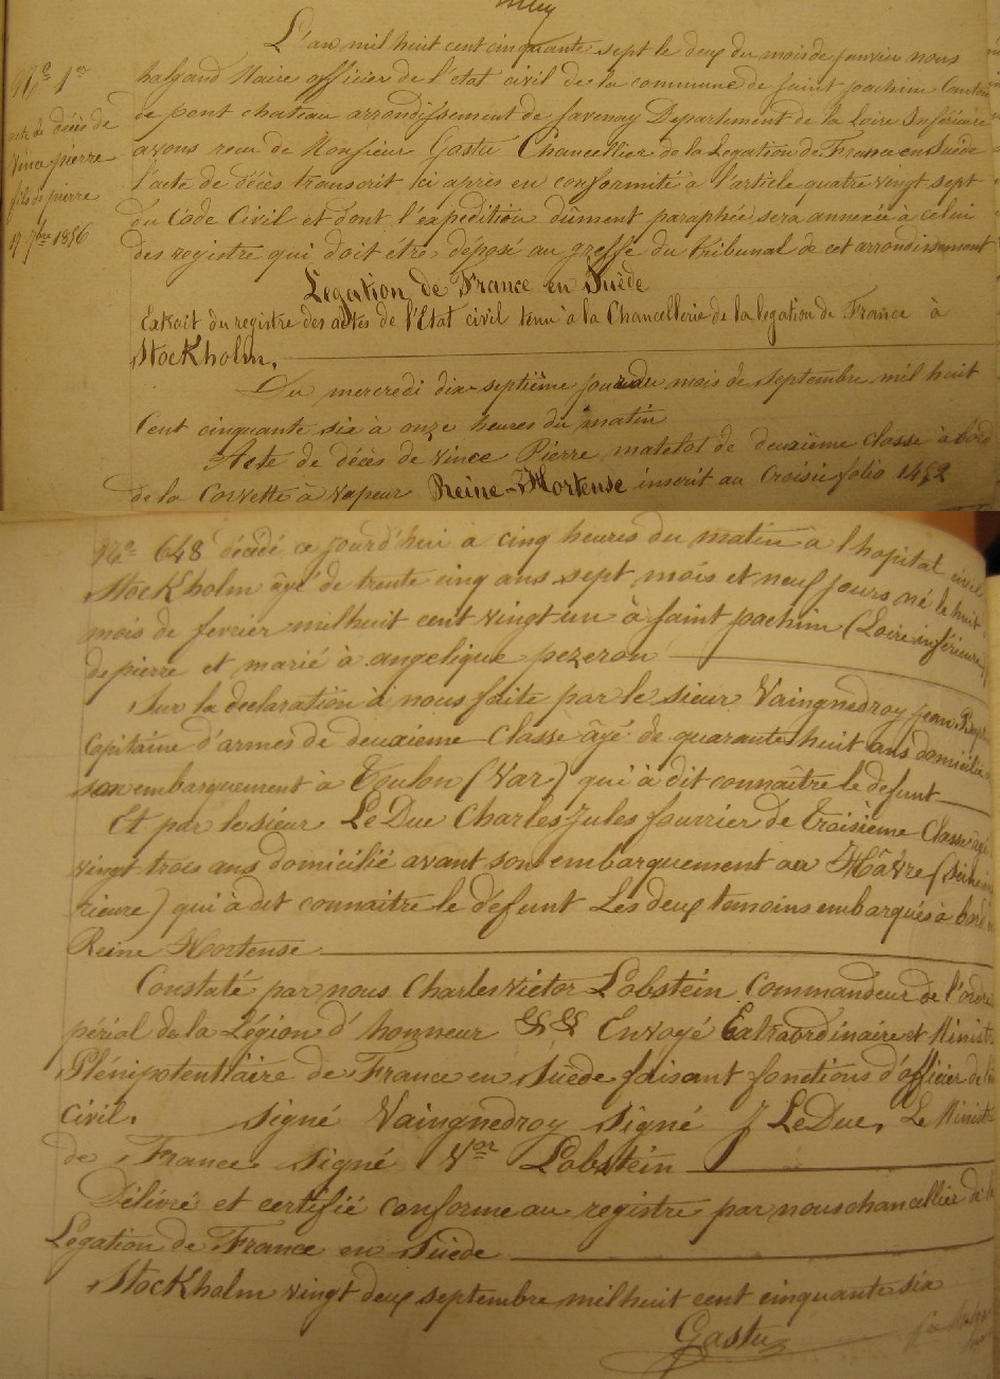 L'an mil huit cent cinquante sept le deux du mois de janvier nous
halgand Maire officier de l'etat civil de la commune de saint joachim Canton
de pont chateau arrondissement de savenay Departement de la Loire Inférieure
avons recu de Monsieur Gastu Chancellier de la Legation de France en Suède
l'acte de décès transcrit ici après en conformité a l'article quatre vingt sept
du Code Civil et dont l'expédition dûment paraphée sera annexée à celui
des registre qui doit être deposé au greffe du tribunal de cet arrondissement
N° 1er
acte de décès de
Vince pierre
fils de pierre
17 7bre 1856
Legation de France en Suède
Extrait du registre des actes de l'Etat civil tenu à la Chancellerie de la legation de France à
Stockholm.
Du mercredi dix-septième jour du mois de septembre mil huit
Cent cinquante six à onze heures du matin
Acte de décès de Vince Pierre matelot de deuxième classe à bord
de la Corvette à vapeur Reine-Hortense inscrit au Croisic folio 1452
N° 648 décédé ce jourd'hui a cinq heures du matin a l'hopital civil
Stockholm âgé de trente cinq ans sept mois et neuf jours né le huit
mois de fevrier mil huit cent vingt un à saint joachim (Loire inférieure)
de pierre et marié à angelique pezeron
Sur la declaration à nous faite par le sieur Vaingnedroy jean
Capitaine d'armes de deuxieme Classe âgé de quarante huit ans domicilié
son embarquement à Toulon (Var) qui à dit connaître le defunt
Et par le sieur LeDuc Charles Jules fourrier de troisième Classe âgé
vingt trois ans domicilié avant son embarquement au Hâvre (Seine
rieure) qui à dit connaitre le défunt Les deux temoins embarqués à bord
Reine Hortense
Constaté par nous Charles Victor Lobstein Commandeur de l'ordre
périal de la Légion d'honneur &&& Envoyé Extraordinaire et Ministre
Plénipotentiaire de France en Suède faisant fonctions d'officier de
civil. signé Vaingnedroy signé J LeDuc, Le Ministre
de France signé Vor Lobstein
Délivré et certifié conforme au registre par nous chancellier de la
Legation de France en Suède
Stockholm vingt deux septembre mil huit cent cinquante six
Gastu